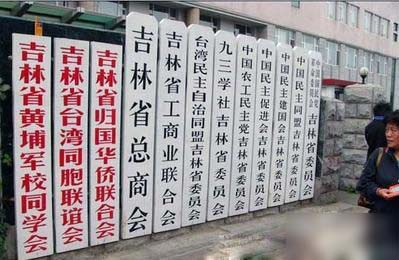 吉林省黄埔军校同学会
吉林省台湾同胞联谊会
吉林省归国华侨联合会
吉林省总商会
吉林省工商业联合会
台湾民主自治同盟吉林省委员会
九三学社吉林省委员会
中国农工民主党吉林省委员会
中国民主促进会吉林省委员会
中国民主建国会吉林省委员会
中国民主同盟吉林省委员会
中国国民党革命委员会吉林省委员会